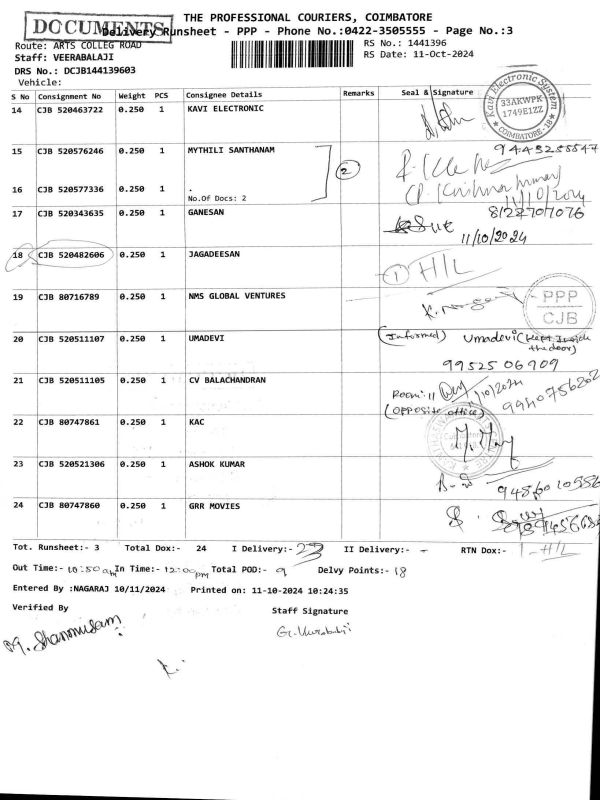 DOCUMENTS
THE PROFESSIONAL COURIERS, COIMBATORE
Delivery Runsheet - PPP - Phone No.:0422-3505555 - Page No.:3
Route: ARTS COLLEG ROAD
RS No.: 1441396
Staff: VEERABALAJI
RS Date: 11-Oct-2024
DRS No.: DCJB144139603
Vehicle:
S No Consignment No Weight PCS Consignee Details Remarks Seal & Signature
14 CJB 520463722 0.250 1 KAVI ELECTRONIC
Kavi Electronic System
33AKWPK
1749E1ZZ
COIMBATORE-18
15 CJB 520576246 0.250 1 MYTHILI SANTHANAM
2
16 CJB 520577336 0.250 1 .
No.Of Docs: 2
11/10/2024
17 CJB 520343635 0.250 1 GANESAN
8122707076
11/10/2024
18 CJB 520482606 0.250 1 JAGADEESAN
1 H/L
19 CJB 80716789 0.250 1 NMS GLOBAL VENTURES
PPP
CJB
20 CJB 520511107 0.250 1 UMADEVI
(Informed) Umadevi (Kept Inside
the door)
9952506909
21 CJB 520511105 0.250 1 CV BALACHANDRAN
Room: 11
(opposite office)
9940756202
22 CJB 80747861 0.250 1 KAC
23 CJB 520521306 0.250 1 ASHOK KUMAR
24 CJB 80747860 0.250 1 GRR MOVIES
Tot. Runsheet:- 3 Total Dox:- 24 I Delivery:- 23 II Delivery:- - RTN Dox:- 1-H/L
Out Time:- 10:50 am In Time:- 12:00 pm Total POD:- 9 Delvy Points:- 18
Entered By :NAGARAJ 10/11/2024 Printed on: 11-10-2024 10:24:35
Verified By
Staff Signature